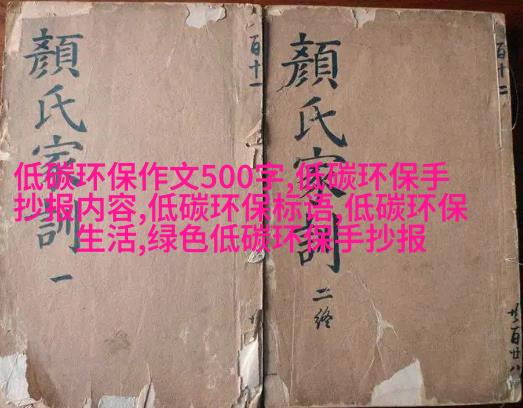 顏氏家訓 一
百十一
顏氏家訓 二終
百十二
低碳环保作文500字,低碳环保手
抄报内容,低碳环保标语,低碳环保
生活,绿色低碳环保手抄报